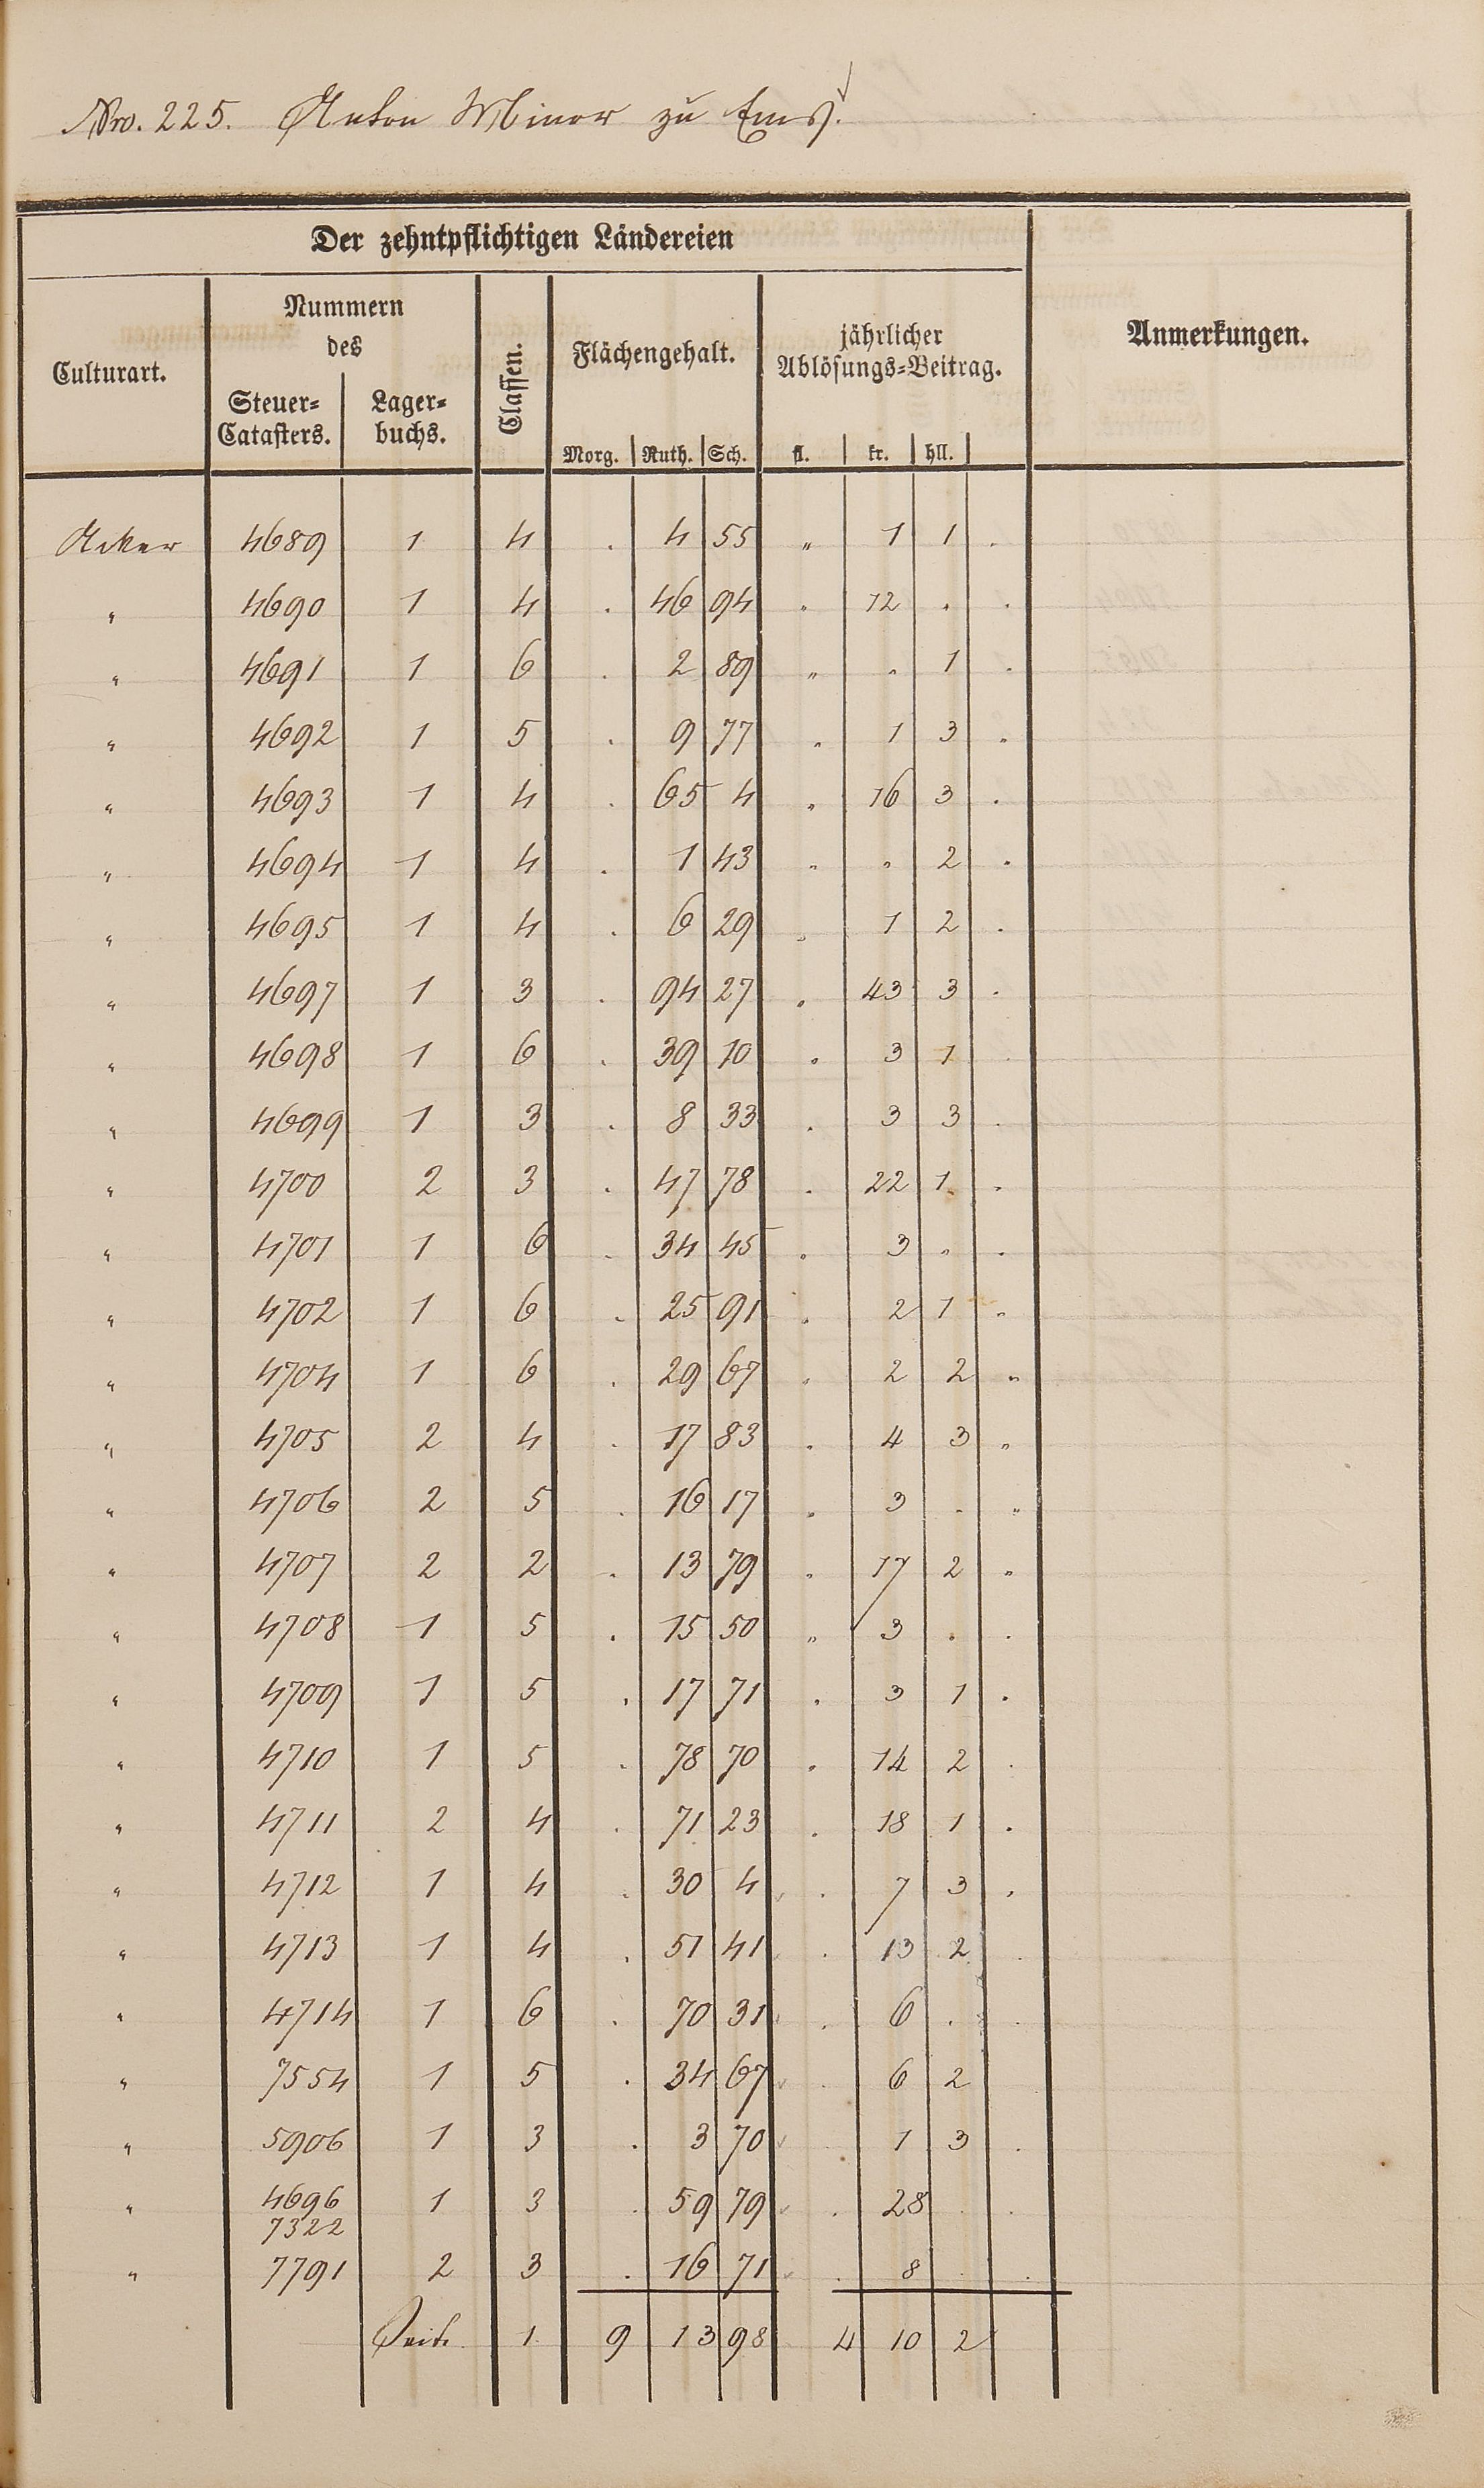 Nro. 225. Anton Minor zu Ems.
Der zehntpflichtigen Ländereien
Culturart. Nummern des Steuer-Catasters. Lager-buchs. Classen. Flächengehalt. jährlicher Ablösungs-Beitrag. Anmerkungen.
Morg. Ruth. Sch. fl. kr. hll.
Acker 4689 1 4 . 4 55 " 1 1 .
" 4690 1 4 . 46 94 " 12 . .
" 4691 1 6 . 2 89 " " 1 .
" 4692 1 5 . 9 77 " 1 3 .
" 4693 1 4 . 65 4 " 16 3 .
" 4694 1 4 . 1 43 " " 2 .
" 4695 1 4 . 6 29 . 1 2 .
" 4697 1 3 . 94 27 . 43 3 .
" 4698 1 6 . 39 10 . 3 1 .
" 4699 1 3 . 8 33 . 3 3 .
" 4700 2 3 . 47 78 . 22 1 .
" 4701 1 6 . 34 45 . 3 " .
" 4702 1 6 . 25 91 . 2 1 "
" 4704 1 6 . 29 67 . 2 2 "
" 4705 2 4 . 17 83 . 4 3 "
" 4706 2 5 . 16 17 " 3 . "
" 4707 2 2 . 13 79 " 17 2 "
" 4708 1 5 . 15 50 " 3 . .
" 4709 1 5 . 17 71 . 3 1 .
" 4710 1 5 . 78 70 . 14 2 .
" 4711 2 4 . 71 23 . 18 1 .
" 4712 1 4 . 30 4 . 7 3 .
" 4713 1 4 . 51 41 . 13 2 .
" 4714 1 6 . 70 31 . 6 . .
" 7554 1 5 . 34 67 . 6 2
" 5906 1 3 . 3 70 1 3 .
" 4696 1 3 . 59 79 . 28 . .
7322
" 7791 2 3 . 16 71 . 8 . .
Seite 1. 9 13 98 4 10 2